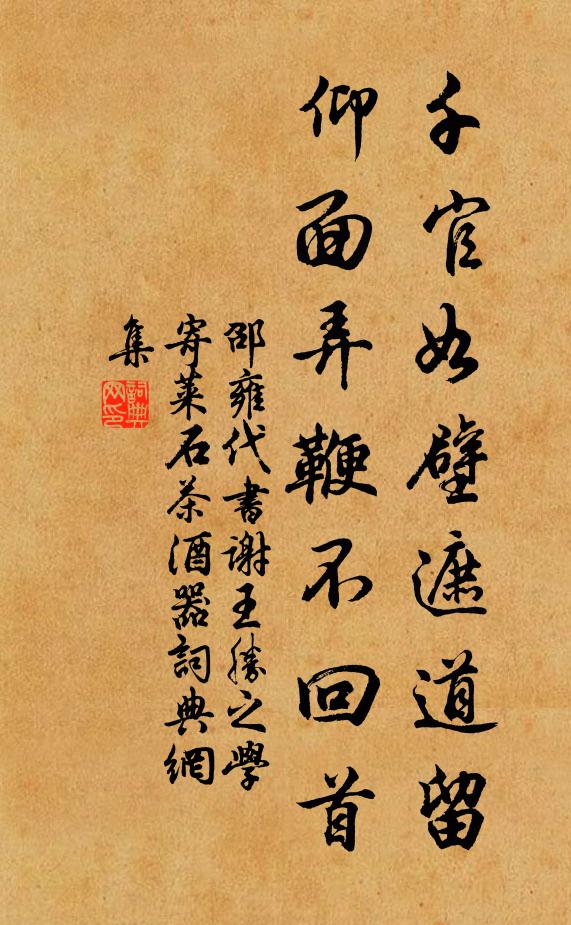 千官如壁遮道留
仰面弄鞭不回首
邵雍代書謝王勝之學
寄萊石茶酒器詞典網
集
詞典
網印